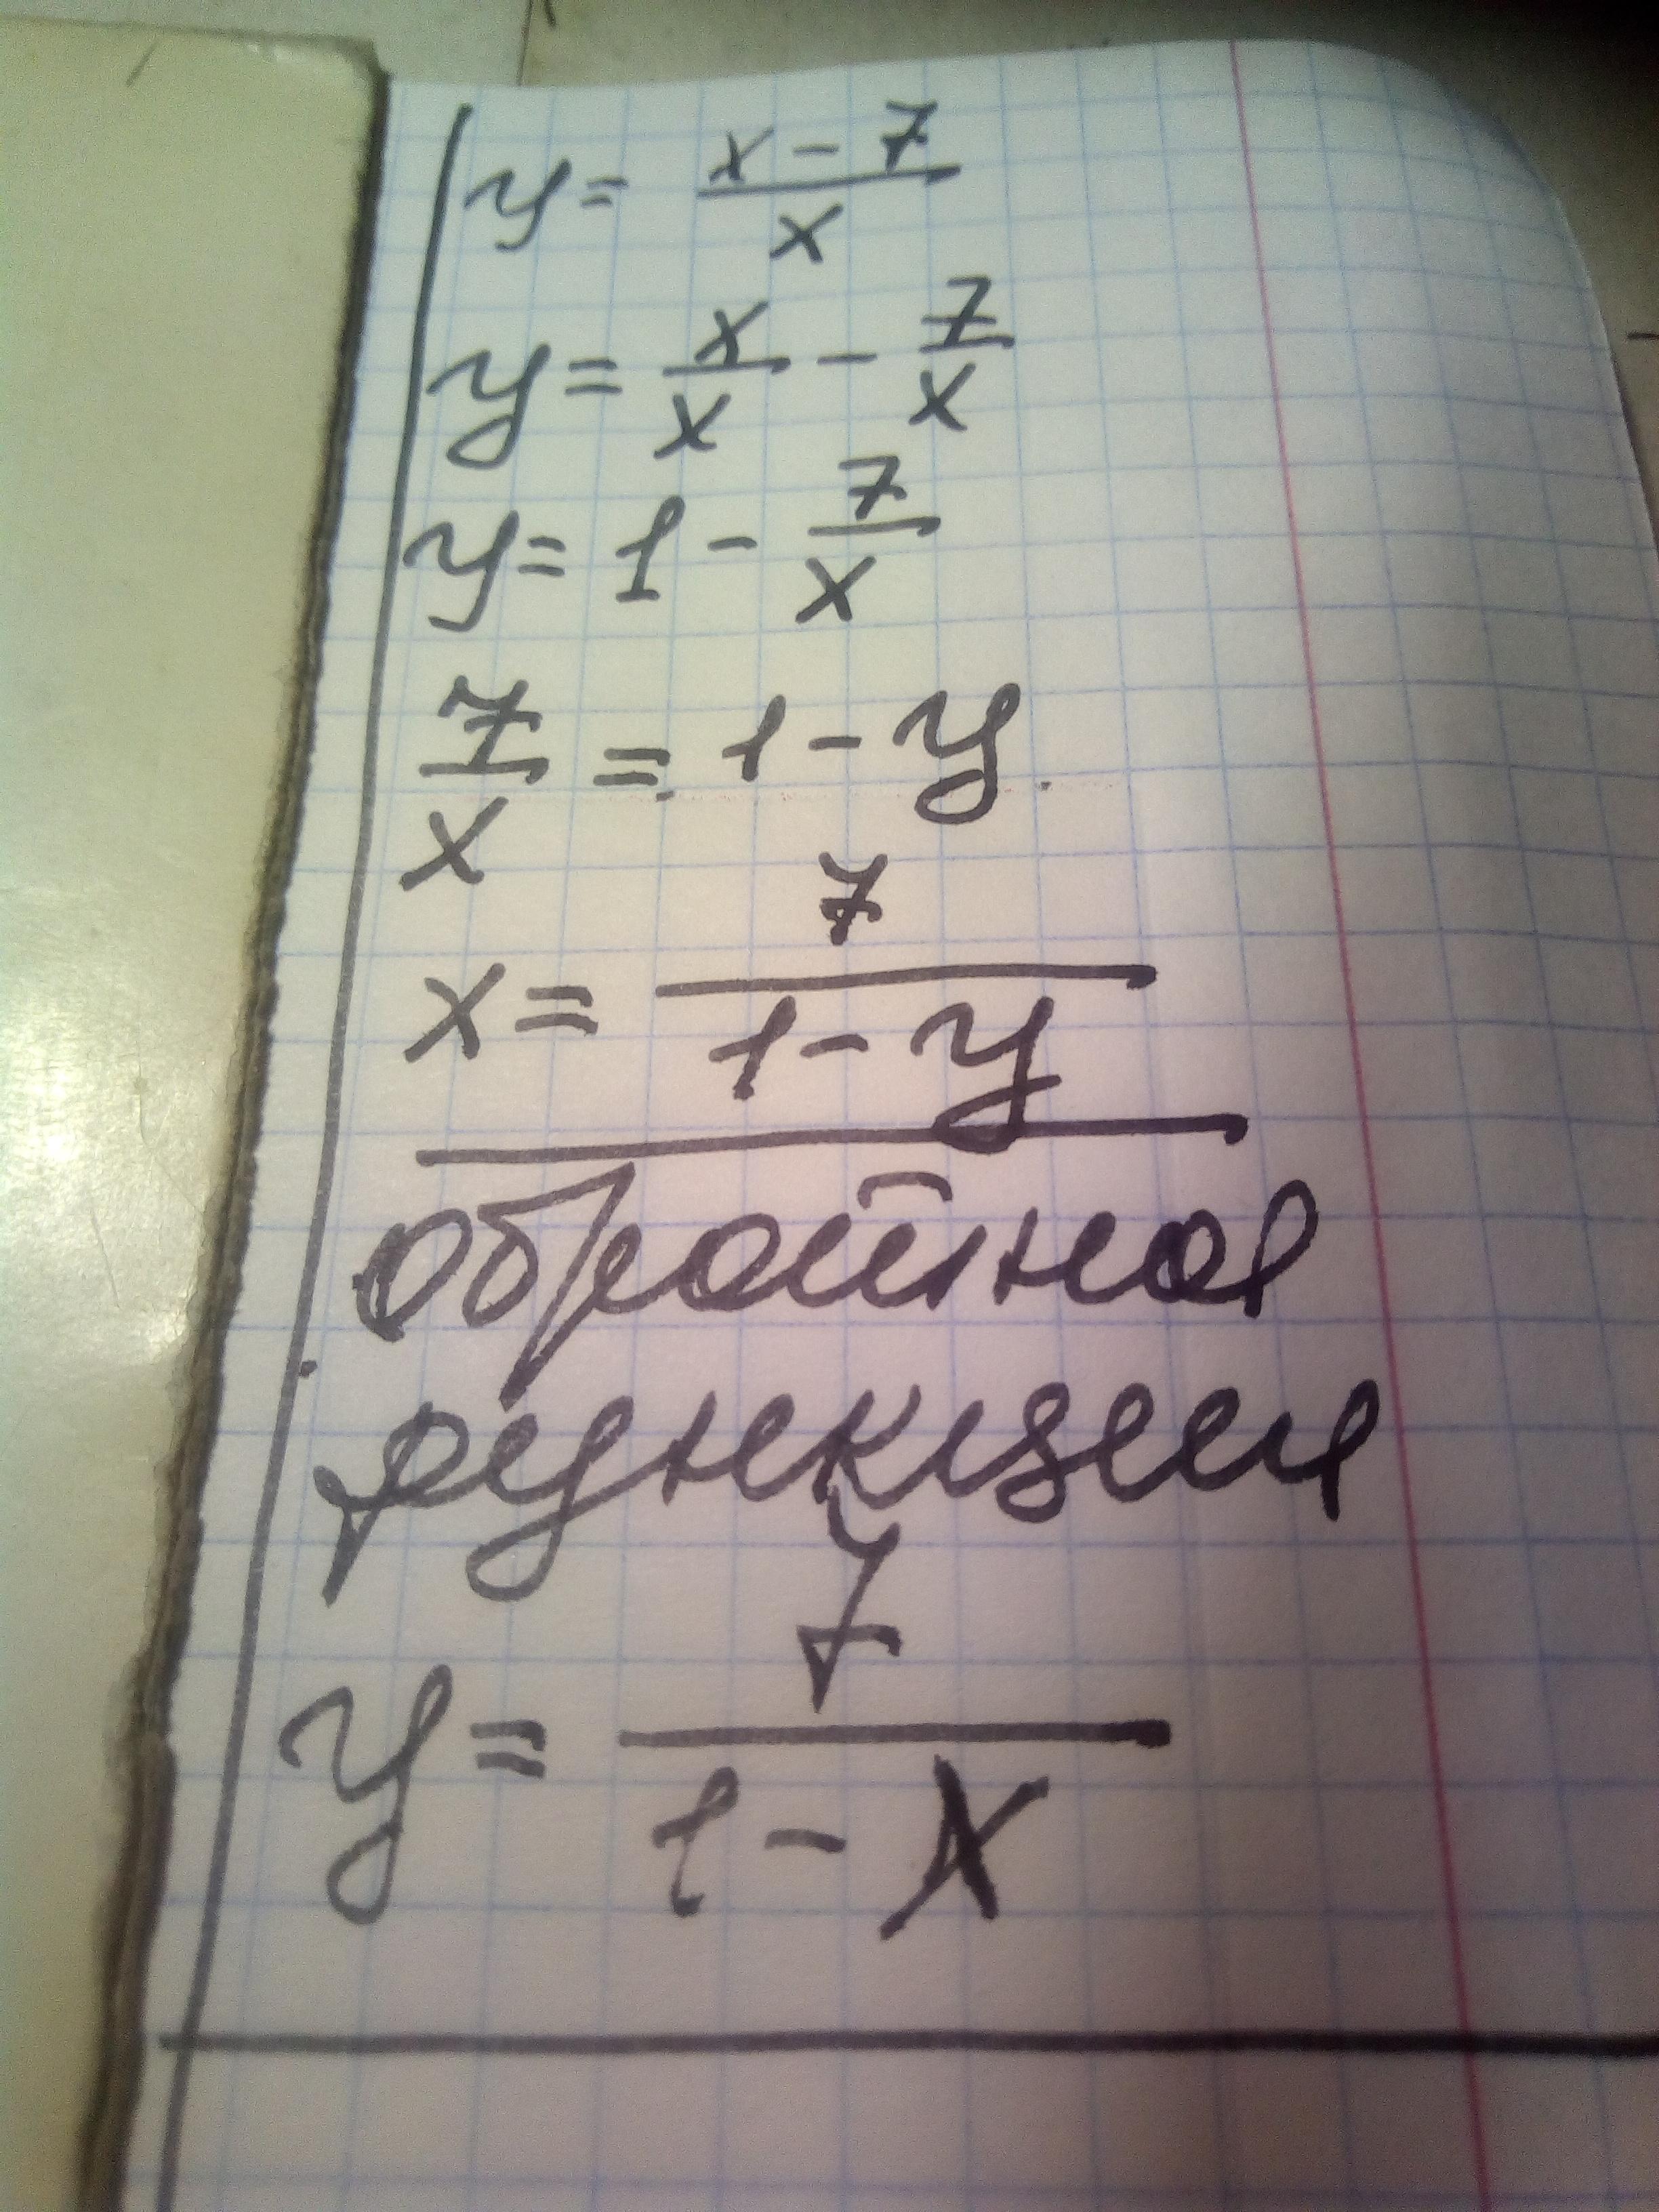 y = (x - 7)/x
y = x/x - 7/x
y = 1 - 7/x
7/x = 1 - y
x = 7/(1 - y)
обратная
функция
y = 7/(1 - x)